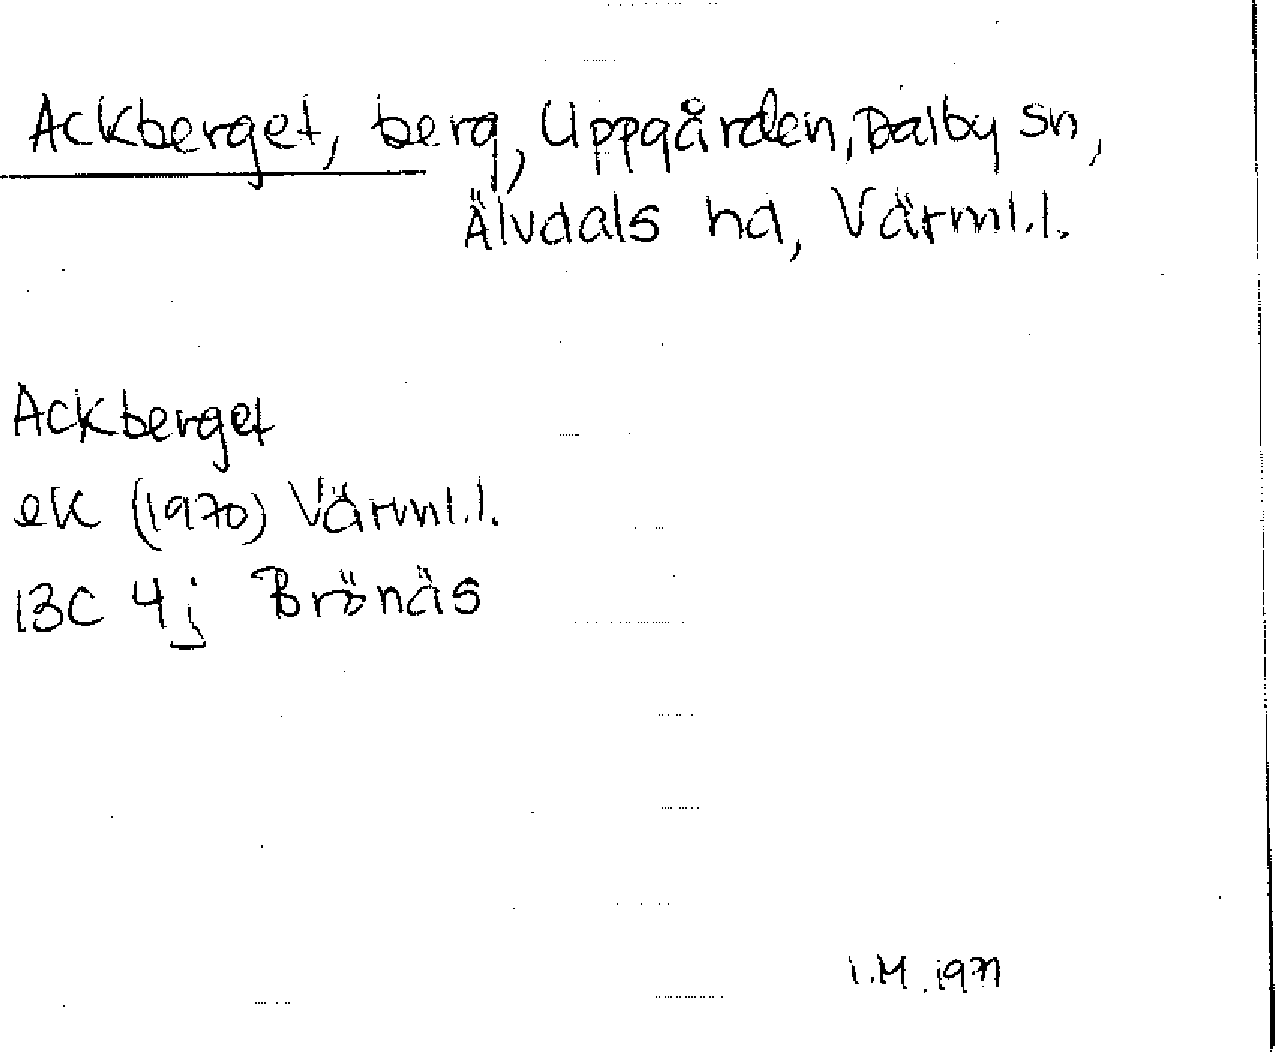 Ackberget, berg, Uppgården, Dalby sn,
Älvdals hd, Värml.l.
Ackberget
eK (1970) Värml.l.
13C 4j Brönäs
I.M. 1971